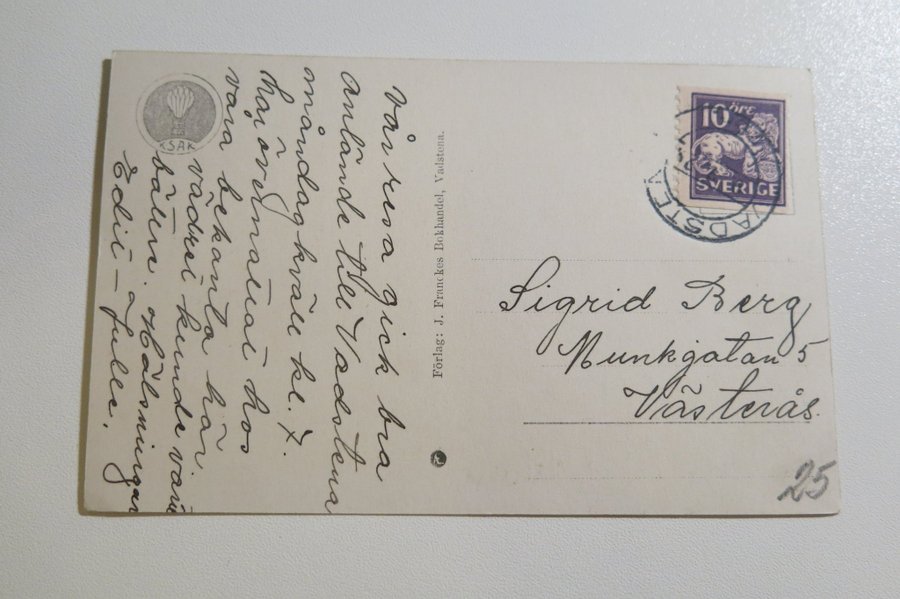 Vår resa gick bra
anlände till Vadstena
måndag kväll kl. 7.
har övernattat hos
vara bekanta här.
vädret kunde varit
bättre. Hälsningar
Edit – Julle.
KSAK
Förlag: J. Franckes Bokhandel, Vadstena.
10 öre
SVERIGE
VADSTEN
Sigrid Berg
Munkgatan 5
Västerås.
25